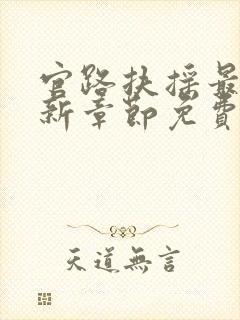 官路扶摇最
新章節免費
天道無言